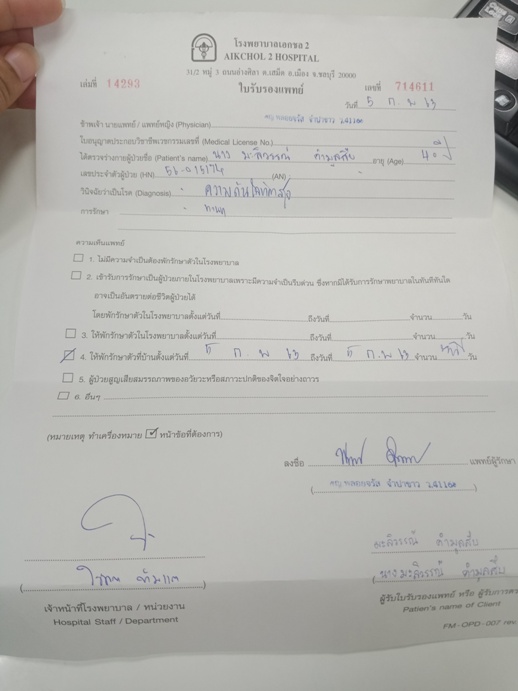 โรงพยาบาลเอกชล 2
AIKCHOL 2 HOSPITAL
31/2 หมู่ 3 ถนนอ่างศิลา ต.เสม็ด อ.เมือง จ.ชลบุรี 20000
เล่มที่ 14293 ใบรับรองแพทย์ เลขที่ 714611
วันที่ 5 ก.พ 63
ข้าพเจ้า นายแพทย์ / แพทย์หญิง (Physician)
ใบอนุญาตประกอบวิชาชีพเวชกรรมเลขที่ (Medical License No.)
ได้ตรวจร่างกายผู้ป่วยชื่อ (Patient's name) นาง มะลิวรรณ์ อายุ (Age) 40 ปี
เลขประจำตัวผู้ป่วย (HN) (AN)
วินิจฉัยว่าเป็นโรค (Diagnosis) ความดันโลหิตสูง
การรักษา
ความเห็นแพทย์
1. ไม่มีความจำเป็นต้องพักรักษาตัวในโรงพยาบาล
2. เข้ารับการรักษาเป็นผู้ป่วยภายในโรงพยาบาลเพราะมีความจำเป็นรีบด่วน ซึ่งหากมิได้รับการรักษาพยาบาลในทันทีทันใด
อาจเป็นอันตรายต่อชีวิตผู้ป่วยได้
โดยพักรักษาตัวในโรงพยาบาลตั้งแต่วันที่ ถึงวันที่ จำนวน วัน
3. ให้พักรักษาตัวในโรงพยาบาลตั้งแต่วันที่ ถึงวันที่ จำนวน วัน
4. ให้พักรักษาตัวที่บ้านตั้งแต่วันที่ 5 ก พ 63 ถึงวันที่ 5 ก.พ 63 จำนวน วัน
5. ผู้ป่วยสูญเสียสมรรถภาพของอวัยวะหรือสภาวะปกติของจิตใจอย่างถาวร
6. อื่นๆ
(หมายเหตุ ทำเครื่องหมาย ☑ หน้าข้อที่ต้องการ)
ลงชื่อ แพทย์ผู้รักษา
มะลิวรรณ์
นางมะลิวรรณ์
เจ้าหน้าที่โรงพยาบาล / หน่วยงาน
Hospital Staff / Department
ผู้รับใบรับรองแพทย์ หรือ
Patien's name of Client
FM-OPD-007 rev